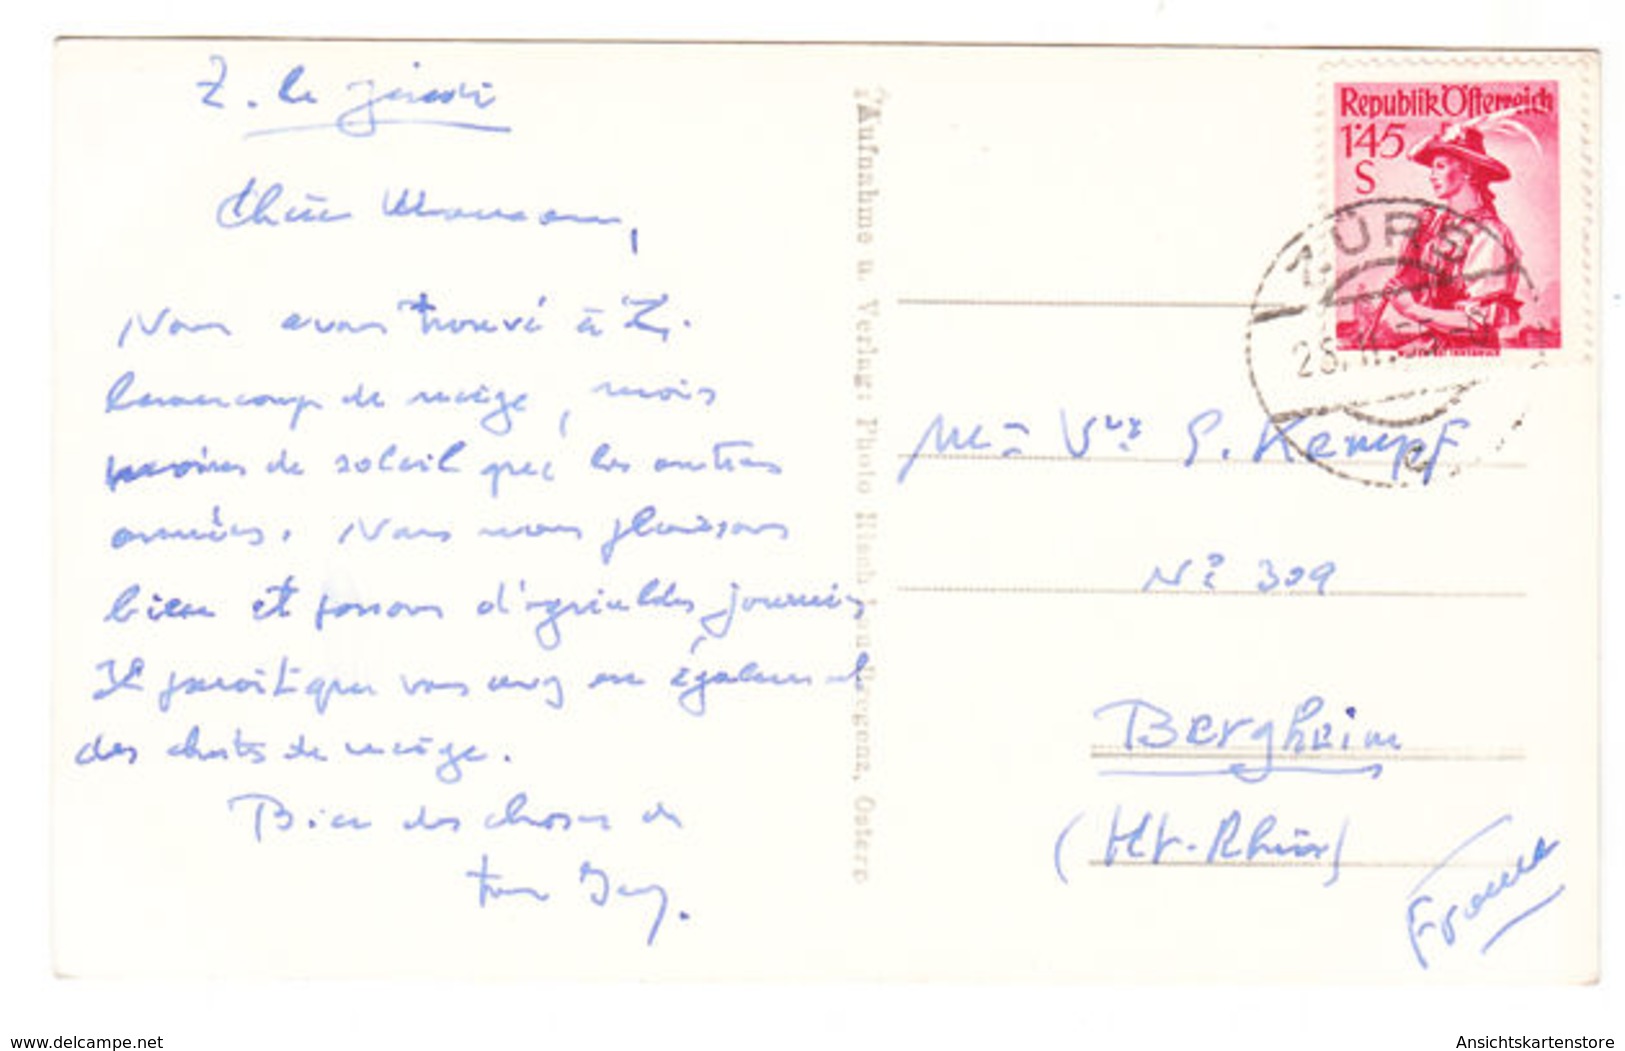 Z. le jeudi
Chère Maman,
Nous avons trouvé à Z.
beaucoup de neige, mais
moins de soleil que les autres
années. Nous nous plaisons
bien et passons d'agréables journées
Il paraît que vous avez eu également
des chutes de neige.
Bien des choses de
ton Guy.
Aufnahme u. Verlag: Photo Risch-Lau, Bregenz, Österr.
Republik Österreich
1'45
S
ZÜRS
Me Vve G. Kempf
No 309
Bergheim
(Ht-Rhin)
France
www.delcampe.net
Ansichtskartenstore